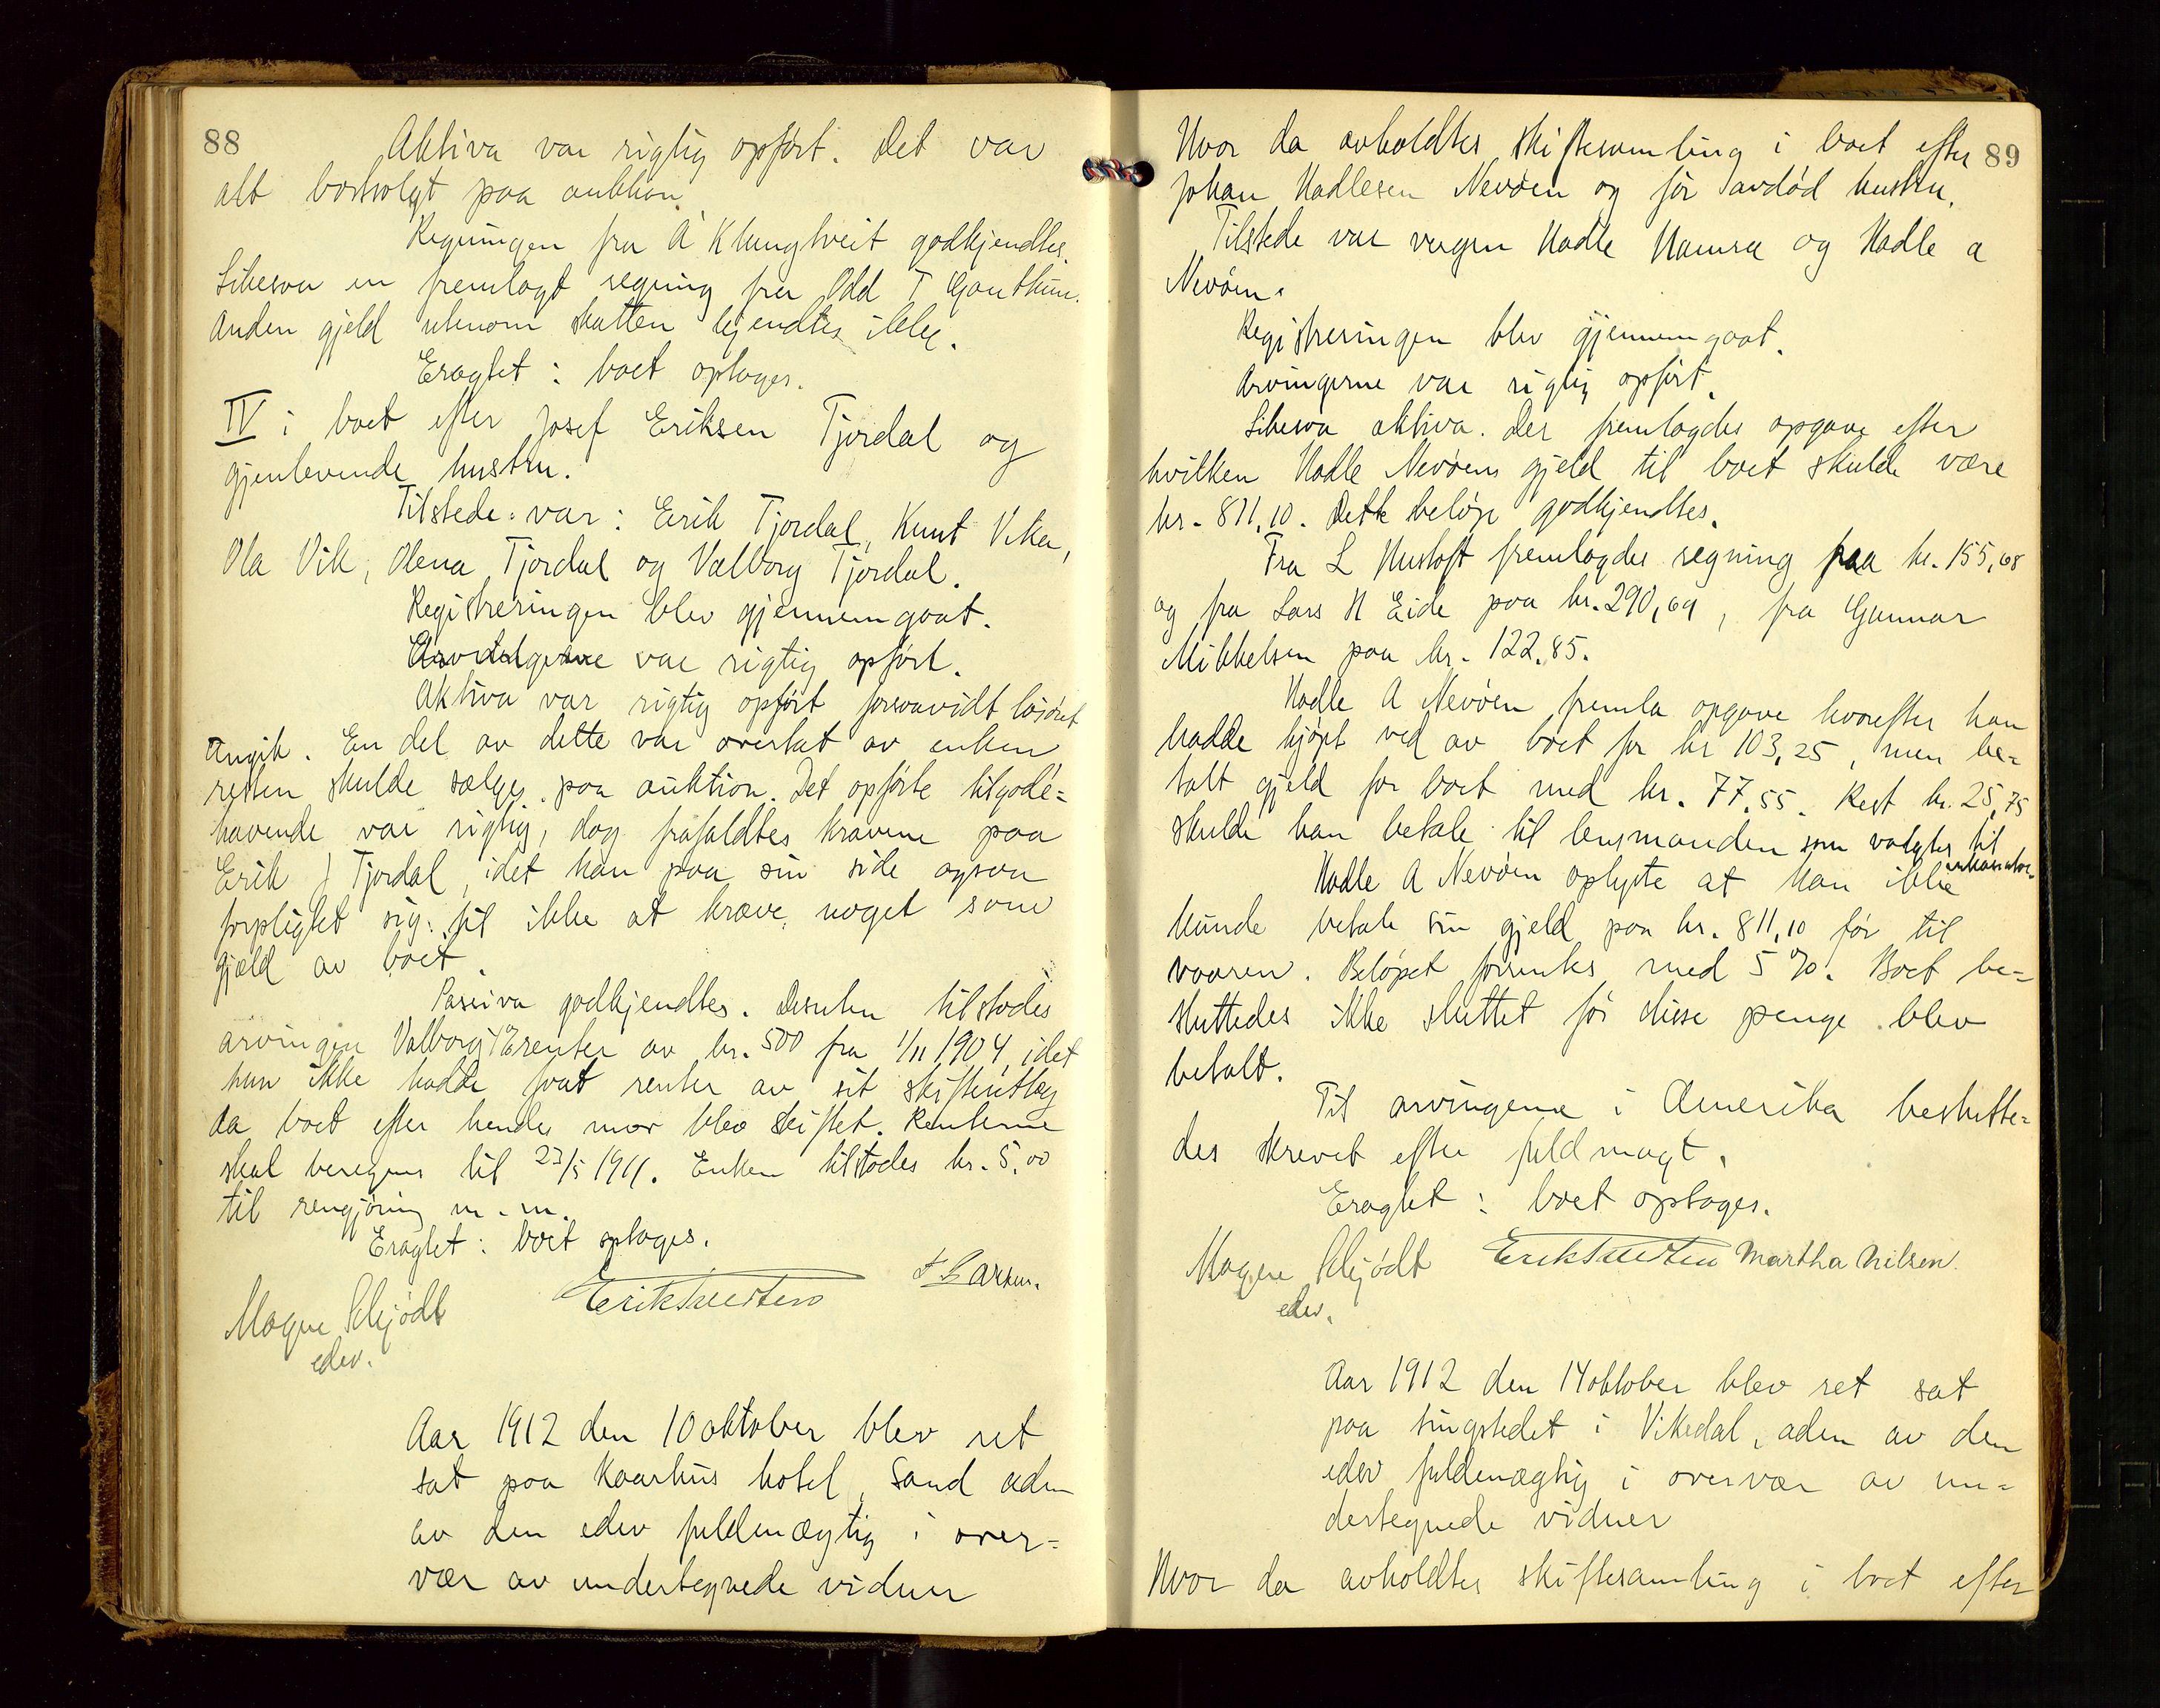 88
Aktiva var rigtig opført. Det var
alt bortsolgt paa auktion.
Regningen fra A Klungtveit godkjendtes.
Likesaa en fremlagt regning fra Odd T Gauthun.
Anden gjeld utenom skatten kjendtes ikke.
Eragtet: boet optages.
IV i boet efter Josef Eriksen Tjordal og
gjenlevende hustru.
Tilstede var: Eirik Tjordal, Knut Vika,
Ola Vik, Olena Tjordal og Valborg Tjordal.
Registreringen blev gjennemgaat.
var rigtig opført.
Aktiva var rigtig opført forsaavidt løsøret
angik. En del av dette var overtat av enken
resten skulde sælges paa auktion. Det opførte tilgode=
havende var rigtig, dog frafaldtes kravene paa
Erik J Tjordal, idet han paa sin side ogsaa
forpligtet sig til ikke at kræve noget som
gjæld av boet.
Passiva godkjendtes. Desuten tilstodes
arvingen Valborg renter av kr. 500 fra 1/11 1904, idet
hun ikke hadde faat renter av sit skifteutlæg
da boet efter hendes mor blev skiftet. Renterne
skal beregnes til 23/5 1911. Enken tilstodes kr. 5,00
til rengjøring m.m.
Eragtet: boet optages.
Magne Schjødt
edsv.
Larsen.
Aar 1912 den 10 oktober blev ret
sat paa Kaarhus hotel, Sand adm
av den edsv fuldmægtig i over=
vær av undertegnede vidner
89
Hvor da avholdtes skiftesamling i boet efter
Johan Hadlesen Nevøen og før avdød hustru.
Tilstede var vergen Hadle Hamra og Hadle A
Nevøen.
Registreringen blev gjennemgaat.
Arvingerne var rigtig opført.
Likesaa aktiva. Der fremlagdes opgave efter
hvilken Hadle Nevøens gjeld til boet skulde være
kr. 811,10. Dette beløp godkjendtes.
Fra L Hustoft fremlagdes regning paa kr. 155,68
og fra Lars H Eide paa kr. 290,69, fra Gunnar
Mikkelsen paa kr. 122,85.
Hadle A Nevøen fremla opgave hvorefter han
hadde kjøpt ved av boet for kr 103,25, men be=
talt gjeld for boet med kr. 77,55. Rest kr. 25,75
skulde han betale til lensmanden som valgtes til
inkassator.
Hadle A Nevøen oplyste at han ikke
kunde betale sin gjeld paa kr. 811,10 før til
vaaren. Beløpet forrentes med 5 %. Boet be=
sluttedes ikke sluttet før disse penge blev
betalt.
Til arvingerne i Amerika beslutte=
des skrevet efter fuldmagt.
Eragtet: boet optages.
Magne Schjødt
edsv.
Martha Nilsen.
Aar 1912 den 14 oktober blev ret sat
paa tingstedet i Vikedal, adm av den
edsv fuldmægtig i overvær av un=
dertegnede vidner
Hvor da avholdtes skiftesamling i boet efter